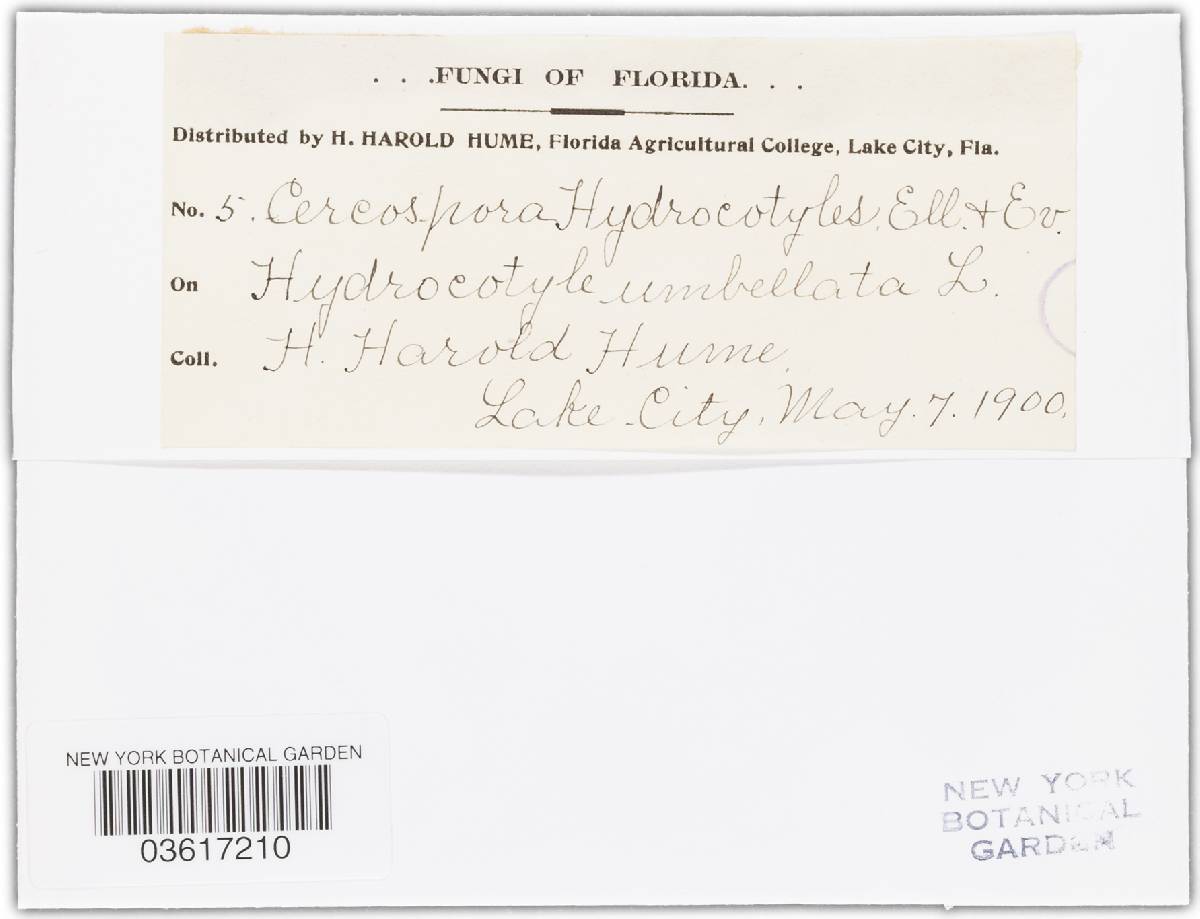 . . .FUNGI OF FLORIDA. . .
Distributed by H. HAROLD HUME, Florida Agricultural College, Lake City, Fla.
No. 5. Cercospora Hydrocotyles. Ell. & Ev.
On Hydrocotyle umbellata L.
Coll. H. Harold Hume.
Lake City, May. 7. 1900.
NEW YORK BOTANICAL GARDEN
03617210
NEW YORK
BOTANICAL
GARDEN